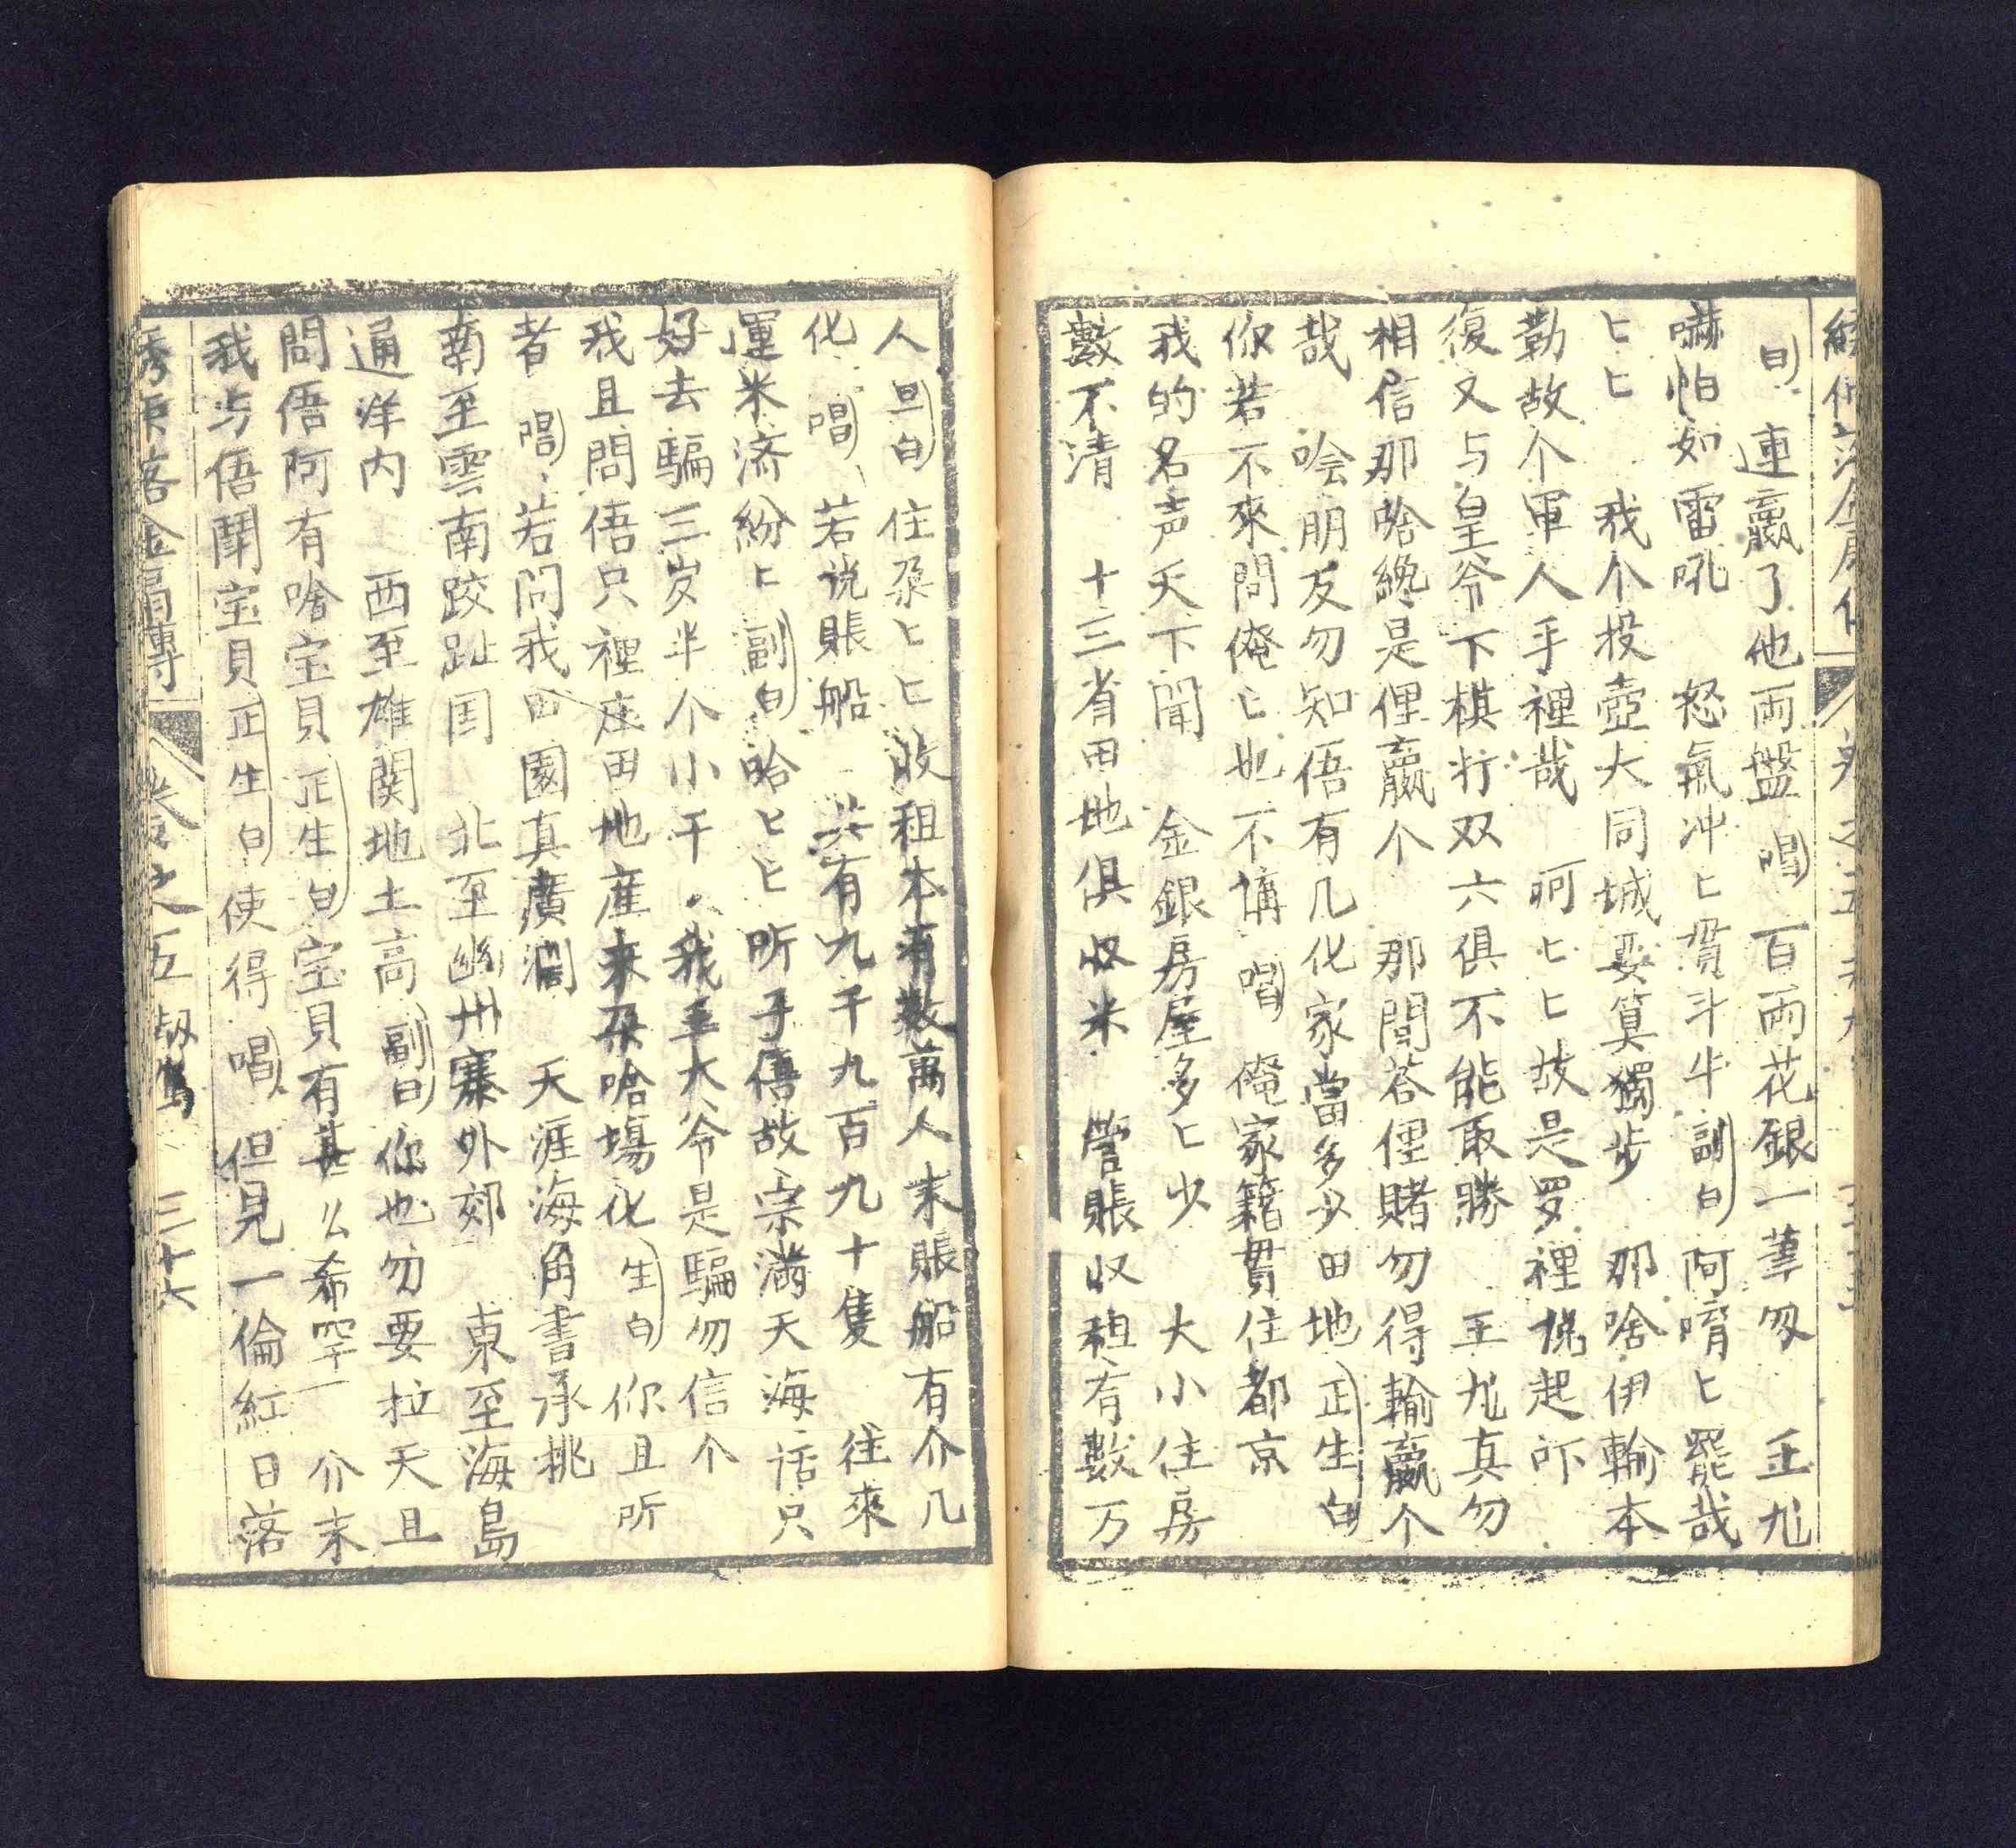 白 連贏了他両盤 唱 百両花銀一筆勾 王尨
嚇怕如雷吼 怒氣冲匕貫斗牛 副白 阿唷匕罷哉
匕匕 我个投壺大同城要算獨步 那啥伊輸本
勤故个軍人手裡哉 呵匕匕故是罗裡說起吓
復又与皇爷下棋打双六俱不能取勝 王尨真勿
相信那啥纔是俚贏个 那間荅俚賭勿得輸贏个
哉 唅朋友勿知俉有几化家當多少田地 正生白
你若不來問俺匕也不講 唱 俺家籍貫住都京
我的名声天下聞 金銀房屋多匕少 大小住房
數不清 十三省田地俱収米 管賬収租有數万
人 旦白 住朶匕匕收租本有數萬人末賬船有介几
化 唱 若说賬船一共有九千九百九十隻 往來
運米济紛匕 副白 哈匕匕所子僖故宗满天海話只
好去騙三岁半个小干 我王大爷是騙勿信个
我且問俉只裡庄田地産来朶啥場化 生白 你且所
者 唱 若问我田園真廣濶 天涯海角書承挑
南至雲南跤趾囯 北至幽州寨外郊 東至海島
通洋内 西至雄関地土高 副白 你也勿要拉天且
問俉阿有啥宝貝 正生白 宝貝有甚么希罕 介末
我与俉鬥宝貝 正生白 使得 唱 但見一倫紅日落
綉像落金扇傳 卷之五 三十六